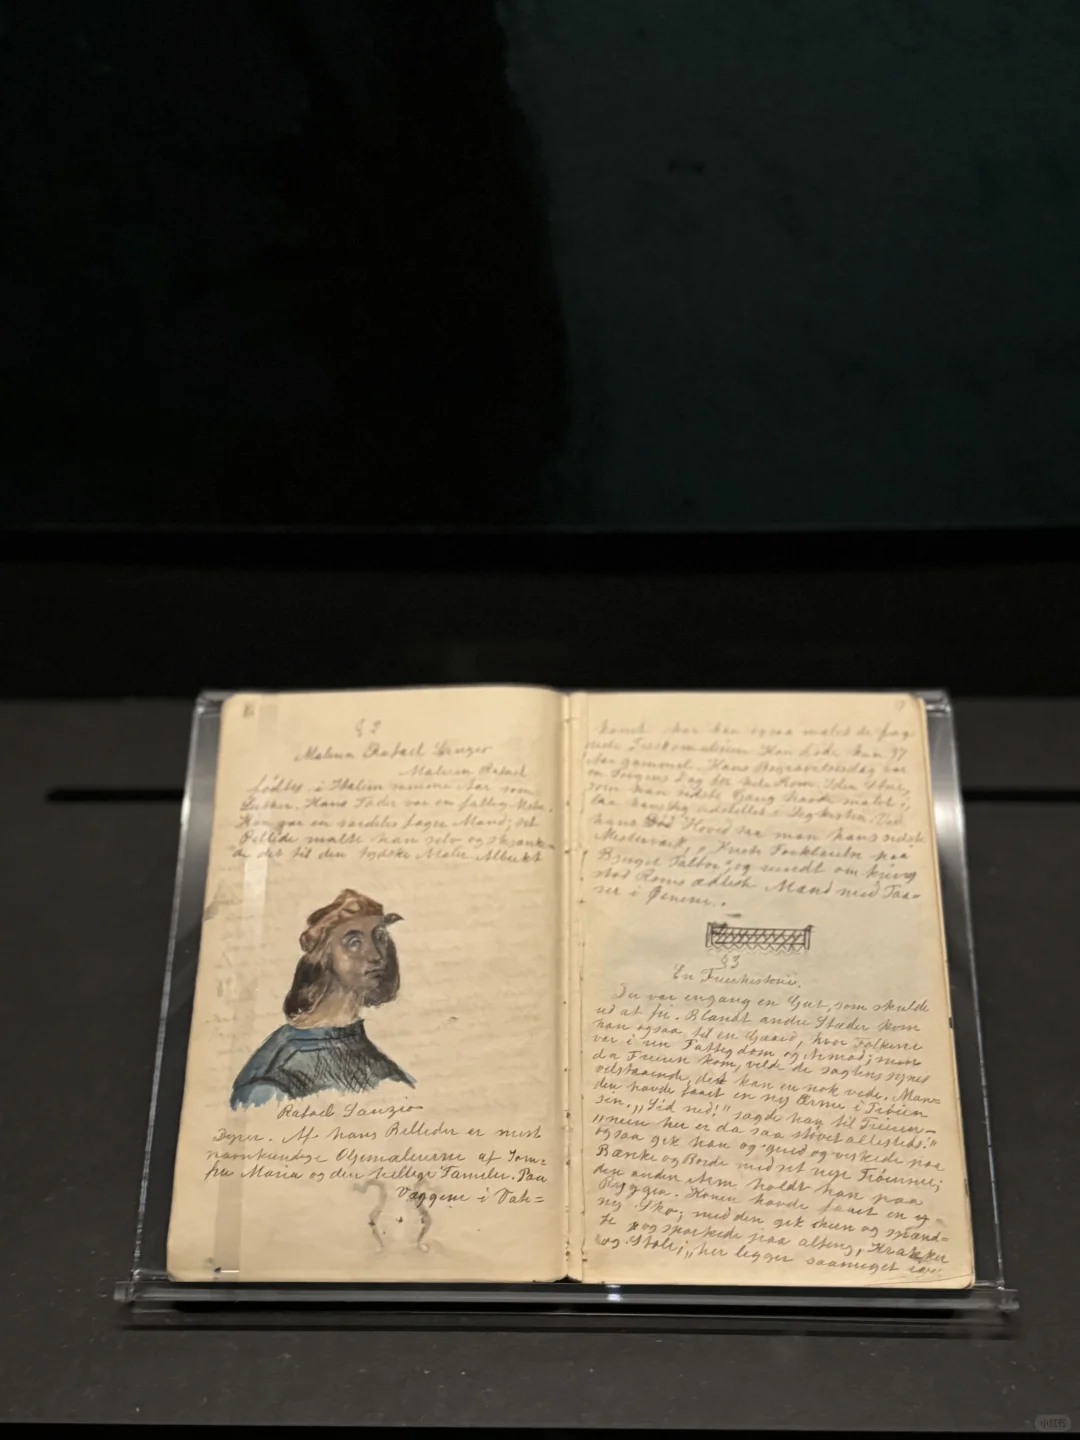 § 2
Maleren Rafael Sanzio
Maleren Rafael
fødtes i Italien samme Aar som
Luther. Hans Fader var en fattig Maler.
Han var en særdeles fager Mand; sit
Billede malte han selv og skjænk-
de det til den tydske Maler Albrekt
Rafael Sanzio
Dyrer. Af hans Billeder er mest
navnkundige Oljemalerierne af Jom-
fru Maria og den hellige Familie. Paa
Væggene i Vati=
har han ogsaa malet de
Han døde kun 37
Aar gammel. Hans Begravelsesdag var
en Sorgens Dag for hele Rom. I den Stue,
som han sidste Gang havde malet i,
laa hans Lig udstillet i Ligkisten. Ved
hans Hoved saa man hans sidste
Mesterværk, "Kristi Forklarelse paa
Bjerget Tabor", og rundt om
stod Roms ædleste Mænd med Taa-
rer i Øinene.
§ 3
En Frierhistorie.
Der var engang en Gut, som skulde
ud at fri. Blandt andre Stæder kom
han ogsaa til en Gaard, hvor Folkene
var i ren Fattigdom og Armod; men
da Frieren kom, vilde de sagtens synes
velstaaende, det kan en nok vide. Man=
den havde faaet en ny Ærme i Trøien
sin. "Sid ned!" sagde han til Frieren –
"men her er da saa støvet allesteds!"
og saa gik han og gned og viskede paa
Bænke og Borde med det nye Trøierme;
den anden Arm holdt han paa
Ryggen. Konen havde faaet en
ny Sko; med den gik hun og spænd=
te og sparkede paa alting, Krakker
og Stole; "her ligger saameget